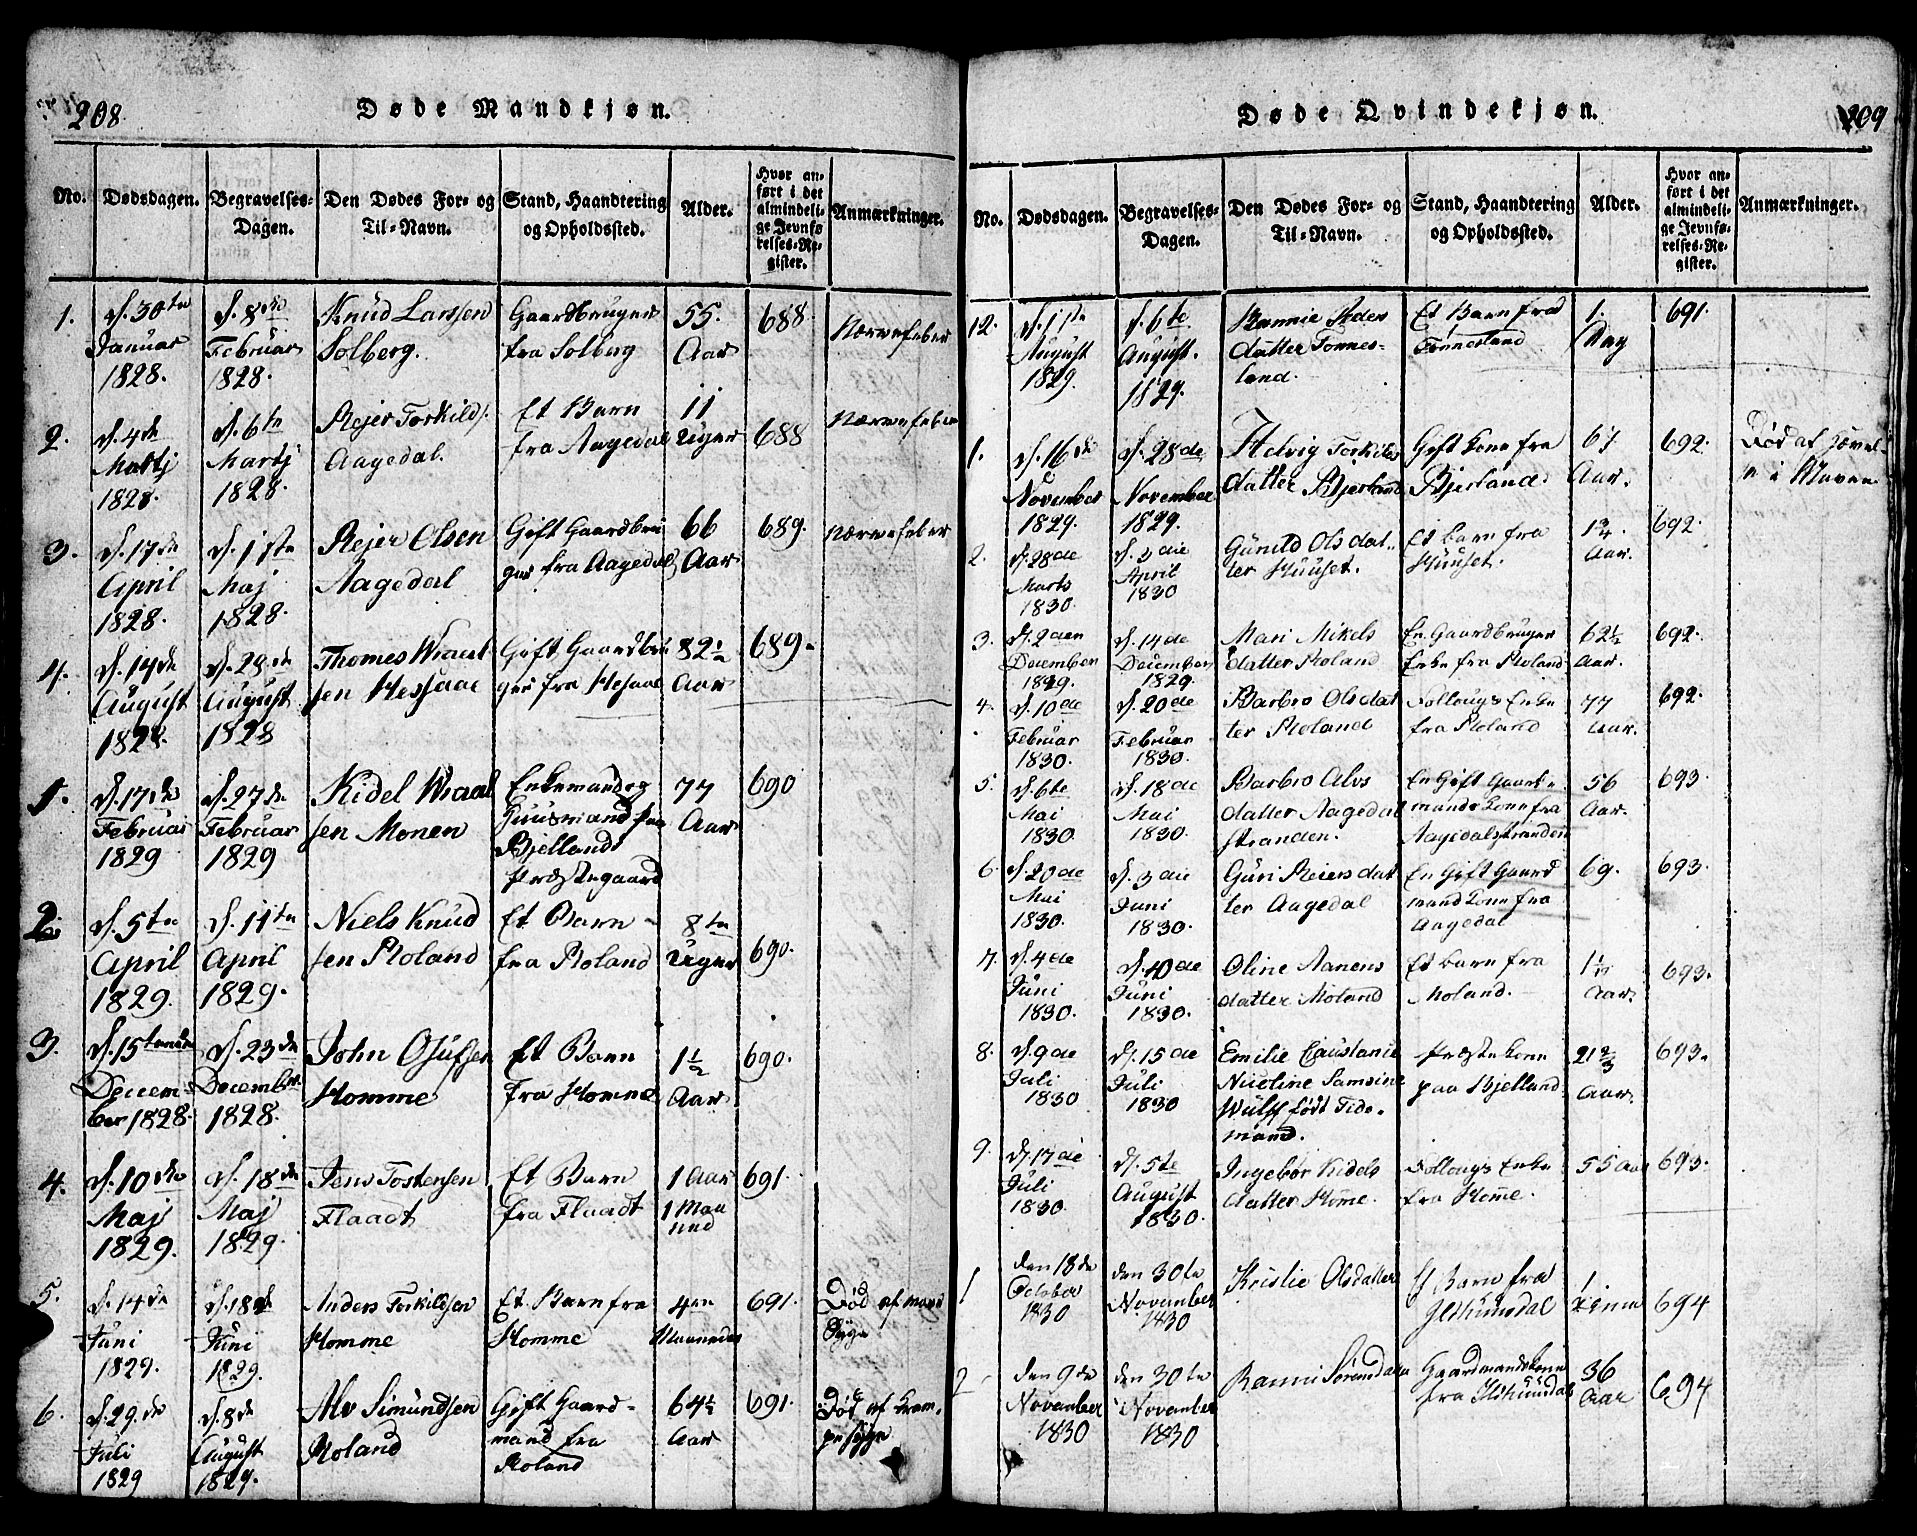 208
Døde Mandkjøn.
No.
Dødsdagen.
Begravelses-
Dagen.
Den Dødes For- og
Til-Navn.
Stand, Haandtering
og Opholdssted.
Alder.
Hvor an-
ført i det
almindeli-
ge Jevnfø-
relses-Re-
gister.
Anmærkninger.
1.
d. 30te
Januar
1828.
d. 8de
Februar
1828.
Knud Larssen
Solberg.
Gaardbruger
fra Solberg
55.
Aar
688.
Nærvefeber
2.
d. 4de
Martj
1828.
d. 6te
Martj
1828.
Rejer Torkilds.
Aagedal.
Et Barn
fra Aagedal
11
Uger
688
Nærvefeber
3.
d. 17de
April
1828.
d. 1ste
Maj
1828.
Rejer Olsen
Aagedal
Gift Gaardbru
ger fra Aagedal
66
Aar
689.
Nærvefeber
4.
d. 14de
August
1828.
d. 28de
August
1828
Thomes Wraal
sen Hessaae
Gift Gaardbru
ger fra Hesaae
82½
Aar
689.
1.
d. 17de
Februar
1829
d. 27de
Februar
1829
Kidel Wraal
sen Monen
Enkemand og
Huusmand fra
Bjelland
Præstegaard
77
Aar
690
2.
d. 5te
April
1829.
d. 11te
April
1829.
Niels Knud
sen Roland
Et Barn
fra Roland
8te
Uger
690.
3.
d. 15tende
Decem-
ber 1828.
d. 23de
December
1828.
John Osufsen
Homme
Et Barn
fra Homme
1½
Aar
690.
4.
d. 10de
Maj
1829.
d. 18de
Maj
1829.
Jens Tostensen
Flaadt
Et Barn
fra Flaadt
1 Aar
1 Maa
ned
691.
5.
d. 14de
Juni
1829.
d. 18de
Juni
1829.
Anders Torkildsen
Homme
Et Barn fra
Homme
4re
Maaneder
691.
Død af
Syge
6.
d. 29de
Juli
1829
d. 8de
August
1829.
Alv Simundsen
Roland
Gift Gaard-
mand fra
Roland
64½
Aar
691.
Død af Kram-
pesyge
209
Døde Qvindekjøn.
No.
Dødsdagen.
Begravelses-
Dagen.
Den Dødes For- og
Til-Navn.
Stand, Haandtering
og Opholdssted.
Alder.
Hvor an-
ført i det
almindeli-
ge Jevnfø-
relses-Re-
gister.
Anmærkninger.
12.
d. 1ste
August
1829.
d. 6te
August.
1829.
Rannie Peders
datter Tonnes-
land.
Et Barn fra
Tonnesland
1.
Dag
691.
1.
d. 16de
November
1829.
d. 28de
November
1829.
Helvig Torkilds
datter Bjerland
Gift Kone fra
Bjerland.
67
Aar.
692.
Død af
i Maven
2.
d. 28de
Marts
1830.
d. 3die
April
1830
Gunild Olsdat-
ter Huuset.
Et barn fra
Huuset.
1¾
Aar.
692.
3.
d. 2den
December
1829.
d. 14de
December,
1829.
Mari Mikels
datter Roland
En Gaardbruger
Enke fra Roland
62½
Aar.
692.
4.
d. 10de
Februar
1830.
d. 20de
Februar
1830.
Barbro Olsdat
ter Roland
Føllougs Enke
fra Roland
77
Aar.
692.
5.
d. 6te
Mai
1830.
d. 18de
Mai
1830.
Barbro Alvs
datter Aagedal
stranden.
En Gift Gaard-
mands Kone fra
Aagedalstranden
56
Aar.
693.
6.
d. 20de
Mai
1830.
d. 3die
Juni
1830.
Guri Reiersdat
ter Aagedal
En Gift Gaard
mand Kone fra
Aagedal
69.
693.
7.
d. 4de
Juni
1830.
d. 10de
Juni
1830.
Oline Aanens
datter Moland
Et barn fra
Moland.
Aar.
693.
8.
d. 9de
Juli
1830
d. 15de
Juli
1830
Emilie Constanie
Nicoline Samsine
Wulff født Tide-
mand.
Præstekone
paa Bjelland
21⅔
Aar.
693.
9.
d. 17de
Juli
1830.
d. 5te
August
1830.
Ingebor Kidels
datter Home.
Føllougs Enke
fra Home.
55 Aar
693.
1
den 18de
October
1830
den 30te
November
1830
Kristie Olsdatter
Et Barn fra
Ilshuusdal
1.
694
2
den 9de
November
1830
den 30te
November
1830
Ranni Sørensdatter
Gaardmandskone
fra Ilshuusdal
36
Aar
694